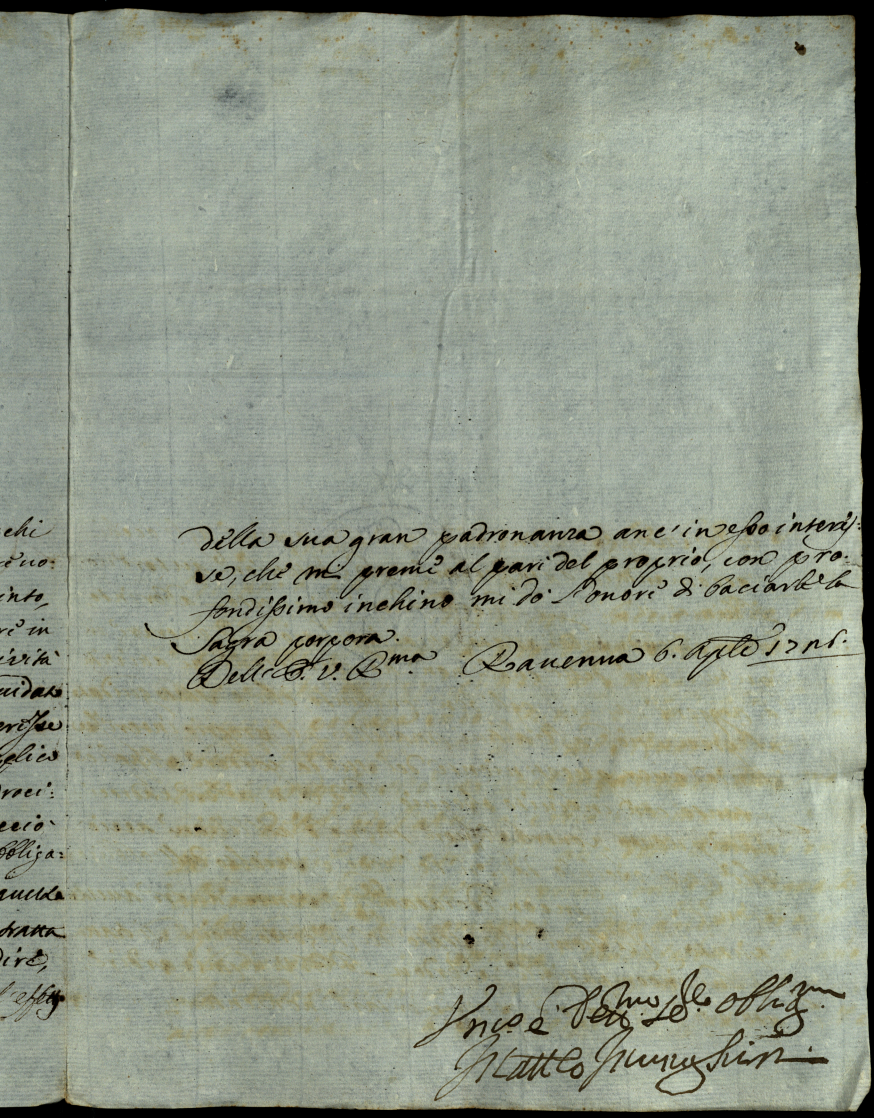 chi
euo:
into,
re in
ività
uidate
eresse
plico
roci:
ccio
obliga:
quella
tratta
dire,
della sua gran padronanza anc' in esso interes:
se, che mi preme al pari del proprio, con pro:
fondissimo inchino mi dò l'onore di baciarle la
Sagra porpora.
Dell' E. V. Rma Ravenna 6. Aple
Vmo e Devmo obligmo
Matteo